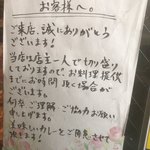 お客様へ。
ご来店、誠にありがとう
ございます!
当店は店主一人で切り盛り
しておりますので、お料理提供
までにお時間頂く場合が
ございます。
何卒ご理解・ご協力お願い
申し上げます。
美味しいカレーをご用意させて
頂きます!